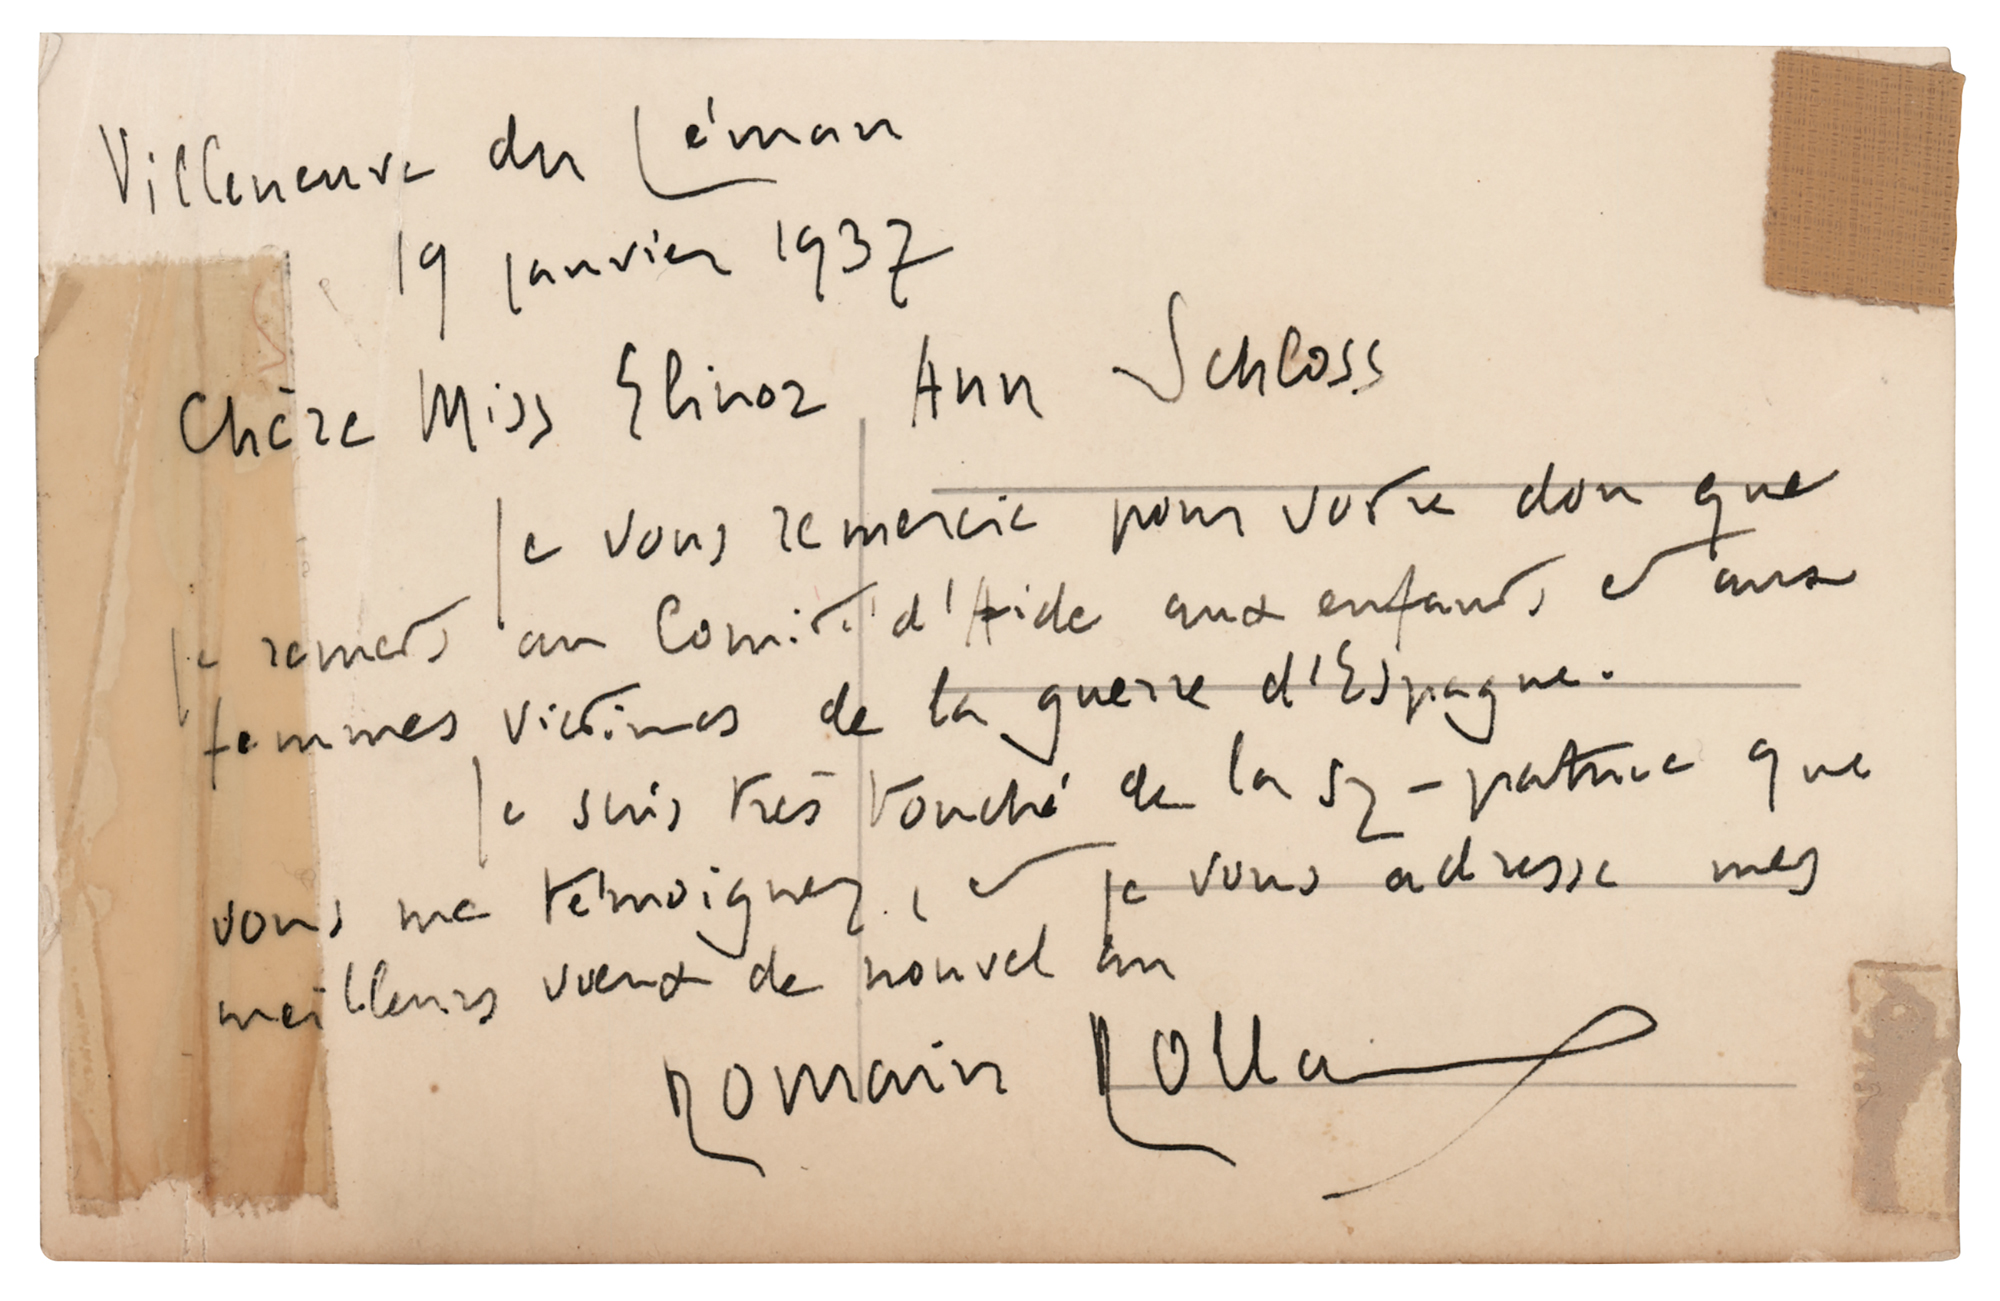 Villeneuve du Léman
19 janvier 1937
Chère Miss Elinor Ann Schloss
Je vous remercie pour votre don que
je remets au Comité d'Aide aux enfants et aux
femmes victimes de la guerre d'Espagne.
Je suis très touché de la sy-pathie que
vous me témoignez, et je vous adresse mes
meilleurs vœux de nouvel an
Romain Rolland